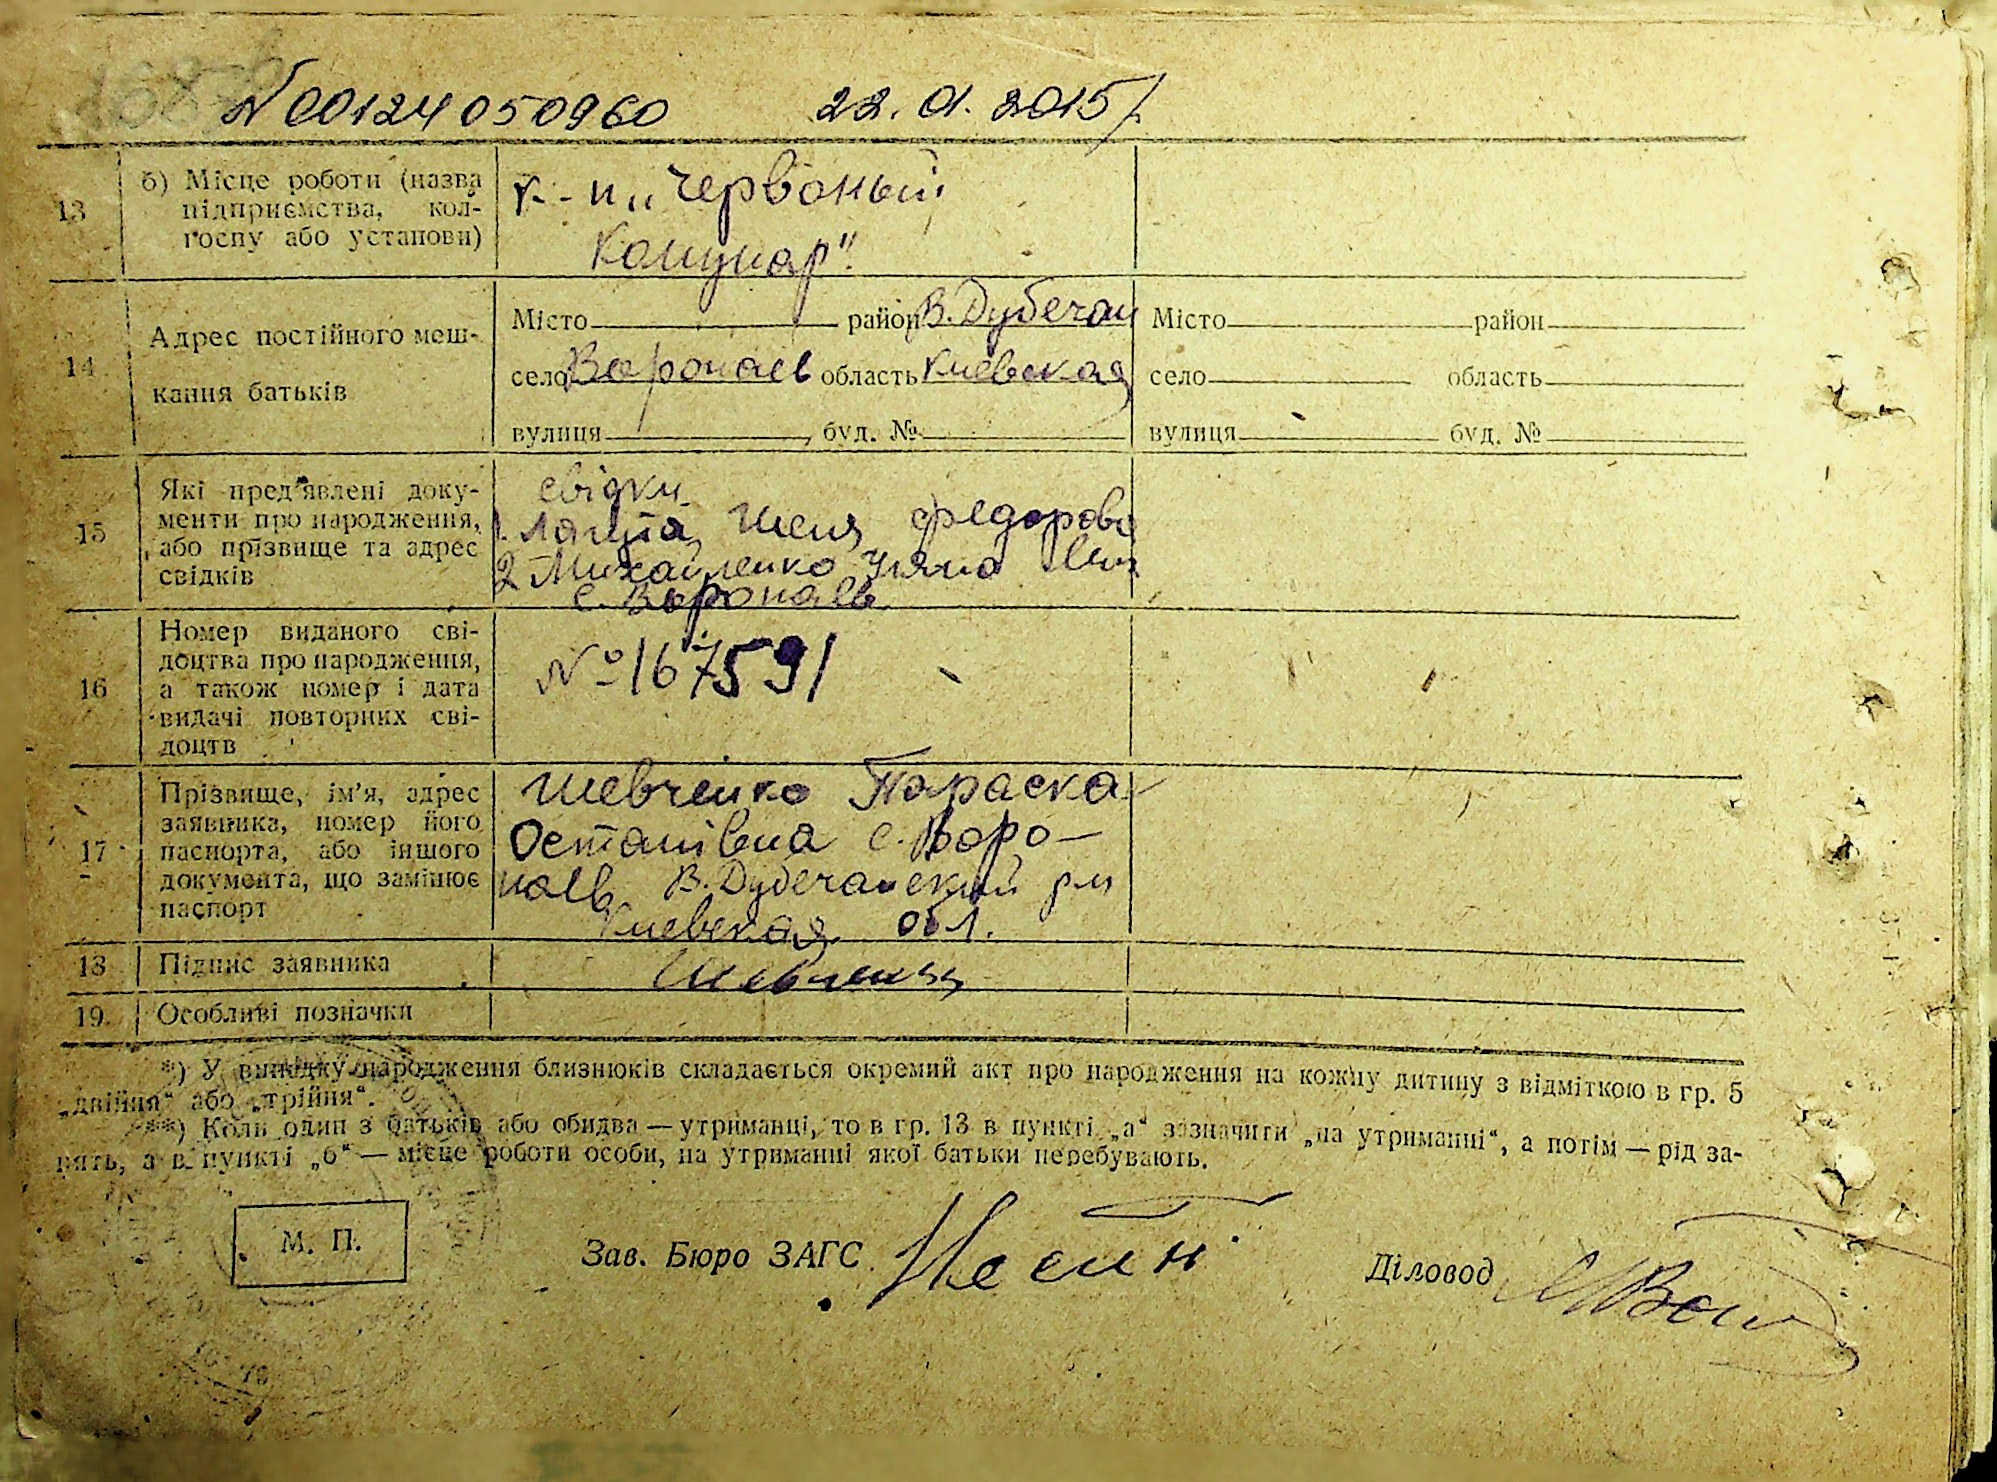 N 00124050960 22.01.2015
13 б) Місце роботи (назва підприємства, кол-
госпу або установи)
к-п „Червоный
Комунар".
14 Адрес постійного меш-
кання батьків
Місто район В. Дубечан Місто район
село Воропаев область Киевская село область
вулиця буд. № вулиця буд. №
15 Які пред'явлені доку-
менти про народження,
або прізвище та адрес
свідків
свідки
1. Федоровн
2 Михайленко Уляна
с. Воропаев
16 Номер виданого сві-
доцтва про народження,
а також номер і дата
видачі повторних сві-
доцтв
№ 167591
17 Прізвище, ім'я, адрес
заявника, номер його
паспорта, або іншого
документа, що замінює
паспорт
Шевченко Параска
Остапівна с. Воро-
паев В. Дубечанский р-н
Киевская обл.
18 Підпис заявника
Шевченко
19 Особливі позначки
*) У випадку народження близнюків складається окремий акт про народження на кожну дитину з відміткою в гр. 5
„двійня“ або „трійня“.
**) Коли один з батьків або обидва — утриманці, то в гр. 13 в пункті „а“ зазначити „на утриманні“, а потім — рід за-
нять, а в пункті „б“ — місце роботи особи, на утриманні якої батьки перебувають.
М. П. Зав. Бюро ЗАГС Діловод